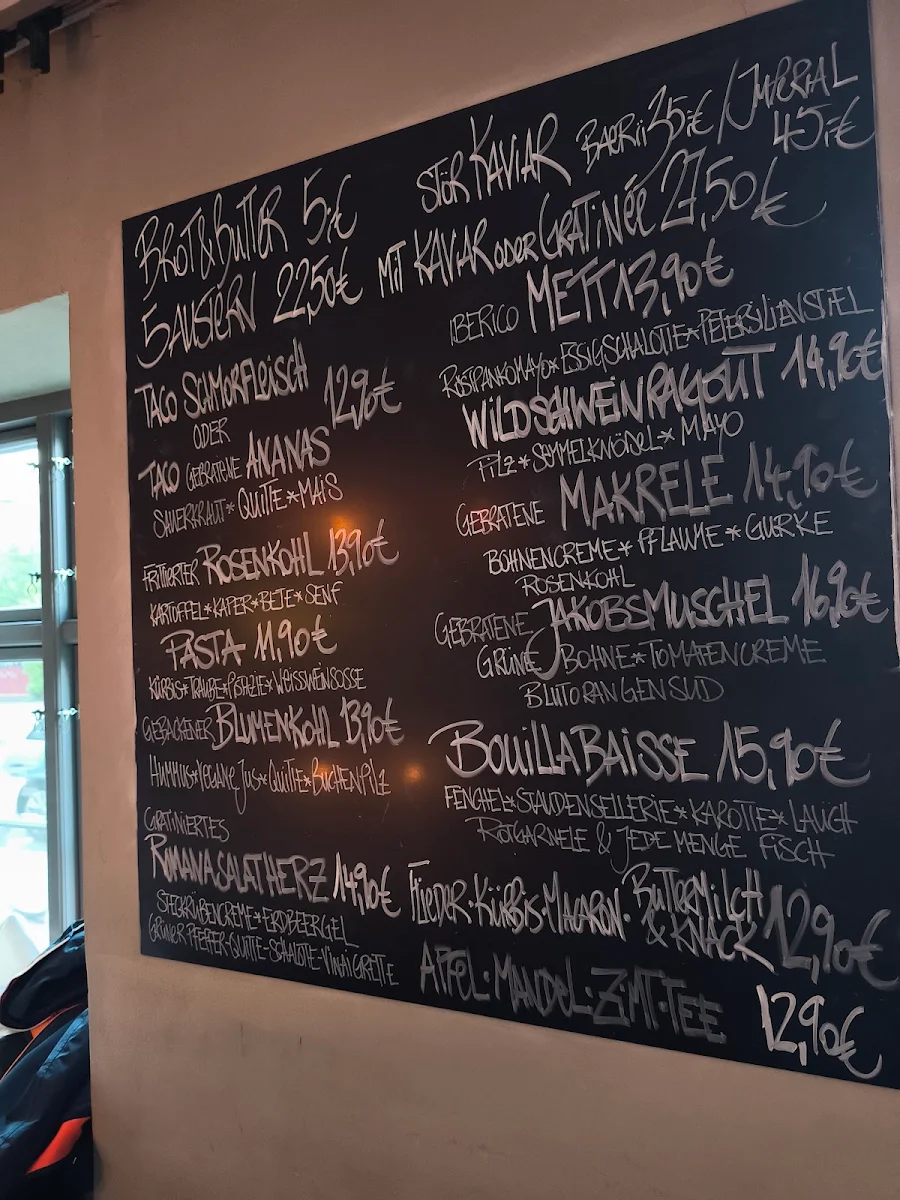 STÖR KAVIAR BAERII 35,-€ / IMPERIAL 45,-€
BROT & BUTTER 5,-€
5 AUSTERN 22,50€ MIT KAVIAR ODER GRATINÉE 27,50€
TACO SCHMORFLEISCH
ODER 12,90€
TACO GEBRATENE ANANAS
SAUERKRAUT * QUITTE * MAIS
FRITTIERTER ROSENKOHL 13,90€
KARTOFFEL * KAPER * BETE * SENF
PASTA 11,90€
KÜRBIS * TRAUBE * PISTAZIE * WEISSWEINSOSSE
GEBACKENER BLUMENKOHL 13,90€
HUMMUS * VEGANE JUS * QUITTE * BUCHENPILZ
GRATINIERTES
ROMANASALATHERZ 14,90€
STECKRÜBENCREME * ERDBEERGEL
GRÜNER PFEFFER - QUITTE - SCHALOTTE - VINAIGRETTE
IBERICO METT 13,90€
RÖSTPANKOMAYO * ESSIGSCHALOTTE * PETERSILIENSTIEL
WILDSCHWEINRAGOUT 14,90€
PILZ * SEMMELKNÖDEL * MAYO
GEBRATENE MAKRELE 14,90€
BOHNENCREME * PFLAUME * GURKE
ROSENKOHL
GEBRATENE JAKOBSMUSCHEL 16,90€
GRÜNE BOHNE * TOMATENCREME
BLUTORANGENSUD
BOUILLABAISSE 15,90€
FENCHEL * STAUDENSELLERIE * KAROTTE * LAUCH
ROTGARNELE & JEDE MENGE FISCH
FLIEDER · KÜRBIS · MACARON · BUTTERMILCH & KNACK 12,90€
APFEL · MANDEL · ZIMT · TEE 12,90€